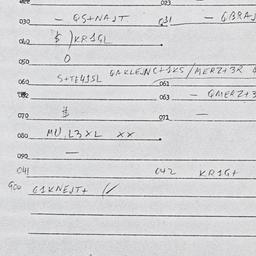 023
030 — QS+NAJT 031 — GBRAJ
040 $ )KR1GL
050 0
060 S+TE41SL QNKLEJNC+1KS/MERZ+3R
061
062 063 — QMERZ+3
070 $ 071 —
080 MU, L3XL XX
090 —
041 042 KR1G+
900 G1KNEJT+ //